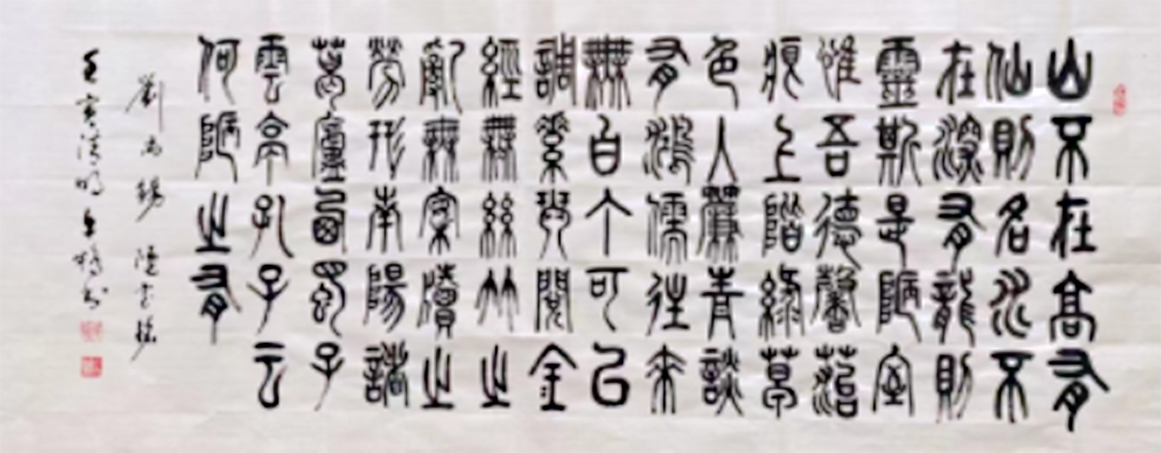 山不在高有
仙則名水不
在深有龍則
靈斯是陋室
惟吾德馨苔
痕上階綠草
色入簾青談
有鴻儒往來
無白丁可以
調素琴閱金
經無絲竹之
亂無案牘之
勞形南陽諸
葛廬西蜀子
雲亭孔子云
何陋之有
劉禹錫陋室銘
壬寅清明